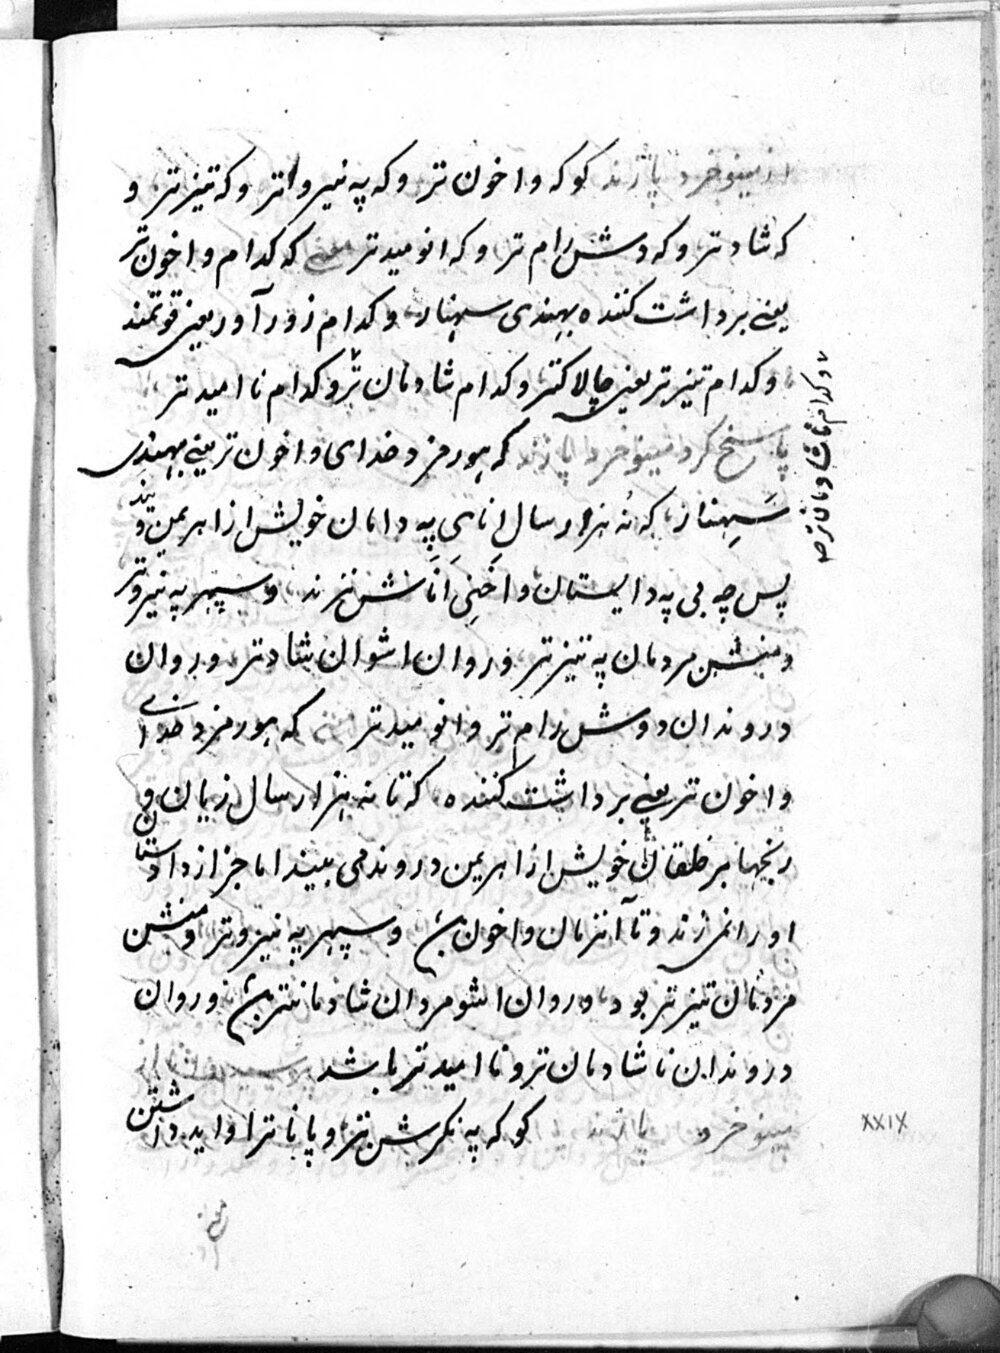 از مینو خرد پاژند کو که واخون تر و که په نیرواتر و که تیزتر و
که شادتر و که دشرام تر و که انومیدتر معنی که کدام واخون تر
یعنی برداشت کننده بهندی سهنار و کدام زورآور یعنی قوتمند
و کدام تیزتر یعنی چالاکتر و کدام شادمان تر و کدام ناامیدتر
و کدام ناشادمان تر صح
پاسخ کرد مینو خرد پاژند که هورمزد خدای واخون تر یعنی بهندی
سَهِنار که نُه هزار سال انای په دامان خویش از اهریمن و
پس چه بی په دایستان واخنی اناش نزند و سپهر په نیروتر
و منشن مردمان په تیزتر و روان اشوان شادتر و روان
دروندان دوش رام تر و انومیدتر معنی که هورمزد خدای
واخون تر یعنی برداشت کننده که تا نه هزار سال زیان و
رنجها بر خلقان خویش از اهریمن دروند می بیند اما جز از دادستان
او را نمی زند و تا آنزمان واخون و سپهر په نیروتر و منشن
مردمان تیزتر بود و روان اشو مردان شادمانتر و روان
دروندان ناشادمان تر و ناامیدتر باشد پرسید دانا از
مینو خرد پاژند کو که په نکرشن تر و پاناتر اواید داشتن
XXIX